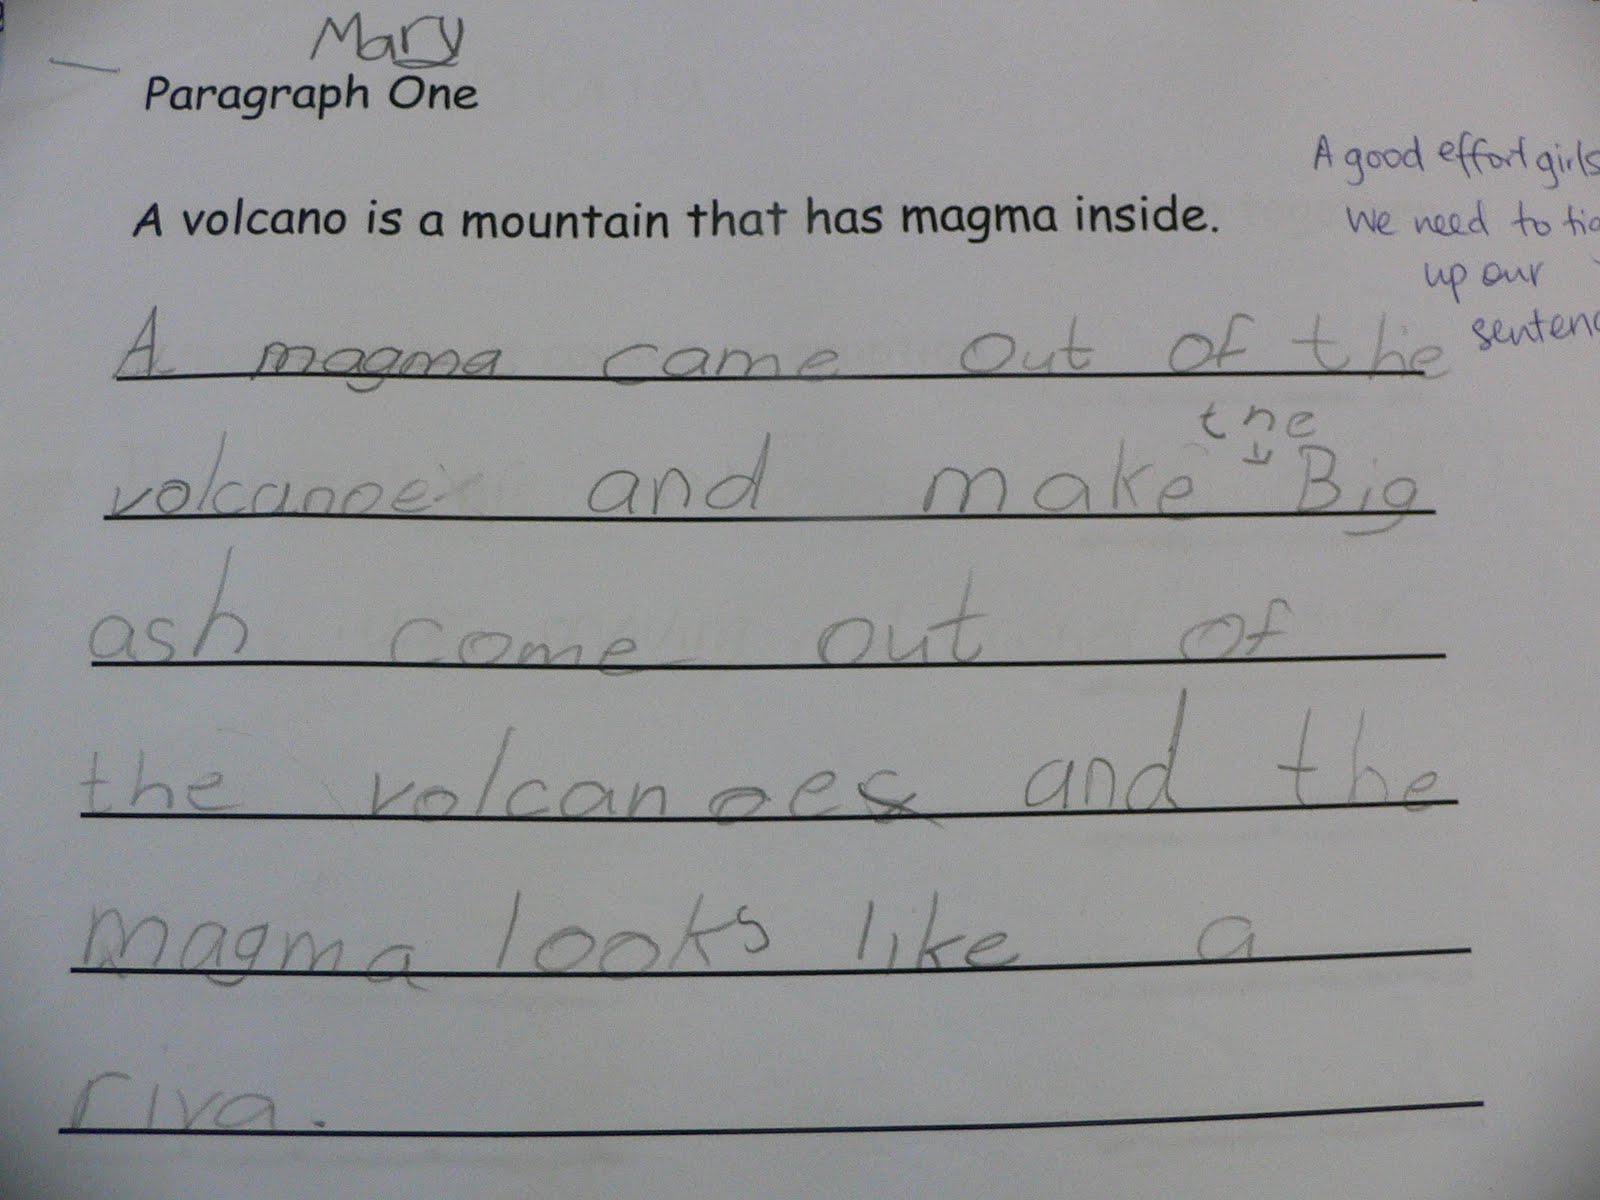 Mary
Paragraph One
A good effort girls
A volcano is a mountain that has magma inside.
We need to
up our
A magma came out of the
the
volcanoe and make Big
ash come out of
the volcanoes and the
magma looks like a
riva.